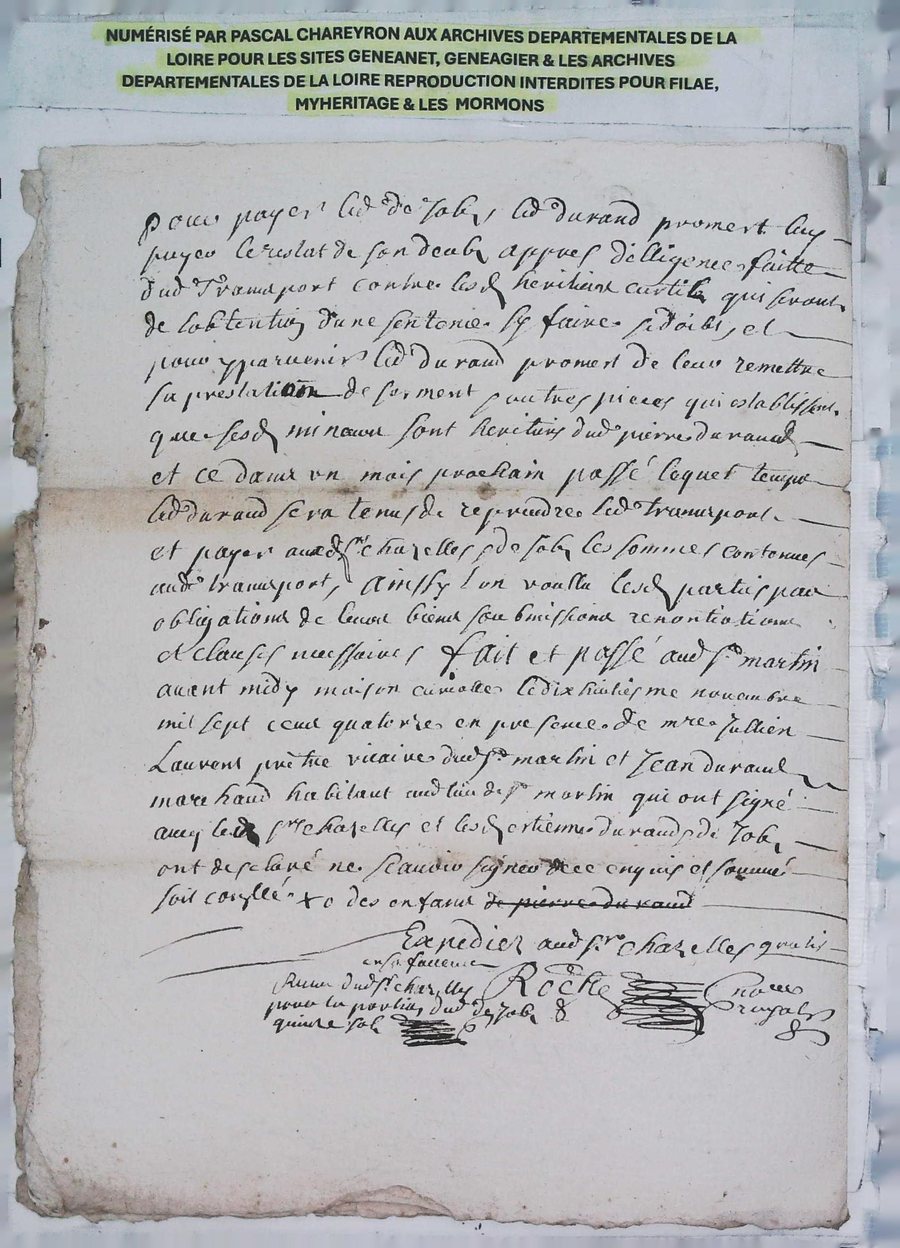 NUMÉRISÉ PAR PASCAL CHAREYRON AUX ARCHIVES DEPARTEMENTALES DE LA
LOIRE POUR LES SITES GENEANET, GENEAGIER & LES ARCHIVES
DEPARTEMENTALES DE LA LOIRE REPRODUCTION INTERDITES POUR FILAE,
MYHERITAGE & LES MORMONS
pour payer led de Job, led durand promert luy
payer le restat de son deub appres dilligence faitte
dud Transport contre lesd heritiers curtil qui seront
de lobtention d'une sentence sy faire se doibt, et
pour y parvenir led durand promert de leur remettre
sa prestation de serment & autres pieces qui establissent
que sesd mineurs sont heritiers dud pierre durand
et ce dans un mois prochain passé lequel temps
led durand sera tenu de reprendre led transport
et payer auxd sr chazelles & de Job les sommes contenues
aud transport, ainssy l'on voullu lesd parties par
obligations de leurs biens soubmissions renontiations
et clauses necessaires fait et passé aud st martin
avant midy maison curialle le dix huitiesme novembre
mil sept cens quatorze en presence de mre Jullien
Laurent prêtre vicaire dud st martin et Jean durand
marchand habitant aud lieu de st martin qui ont signé
avec led sr chazelles et lesd estienne durand & de Job
ont desclaré ne scavoir signer de ce enquis et sommé
soit conllé x des enfans de pierre durand
Expedier aud sr chazelles gratis
en sa faveur
Receu dud sr chazelles
Roche
nore
pour la portion dud de Job
royal
quinze sol